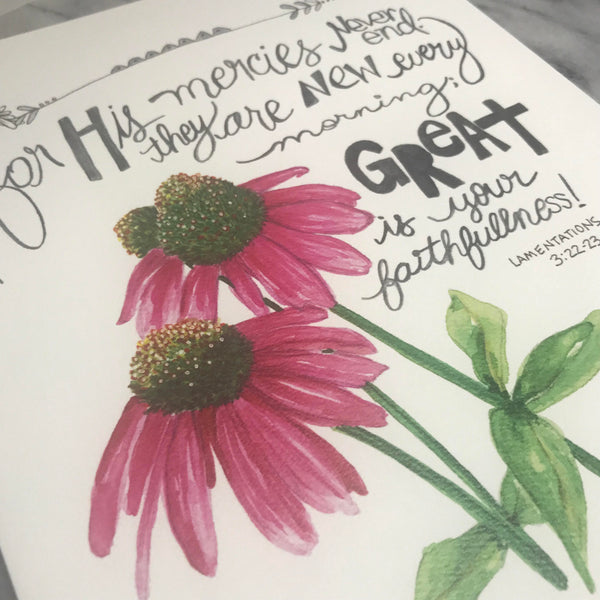 for His mercies Never end.
they are New every
morning;
GREAT
is your
faithfullness!
LAMENTATIONS
3:22-23